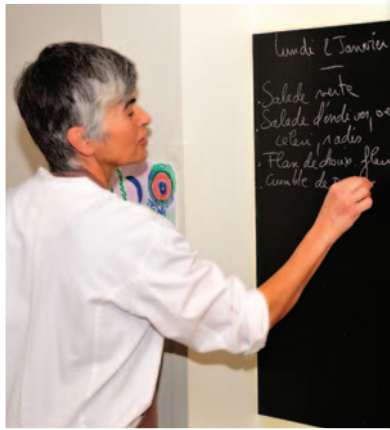 lundi 2 Janvier
. Salade verte
. Salade d'endives,
céleri, radis
. Flan de choux fleu
. Crumble de